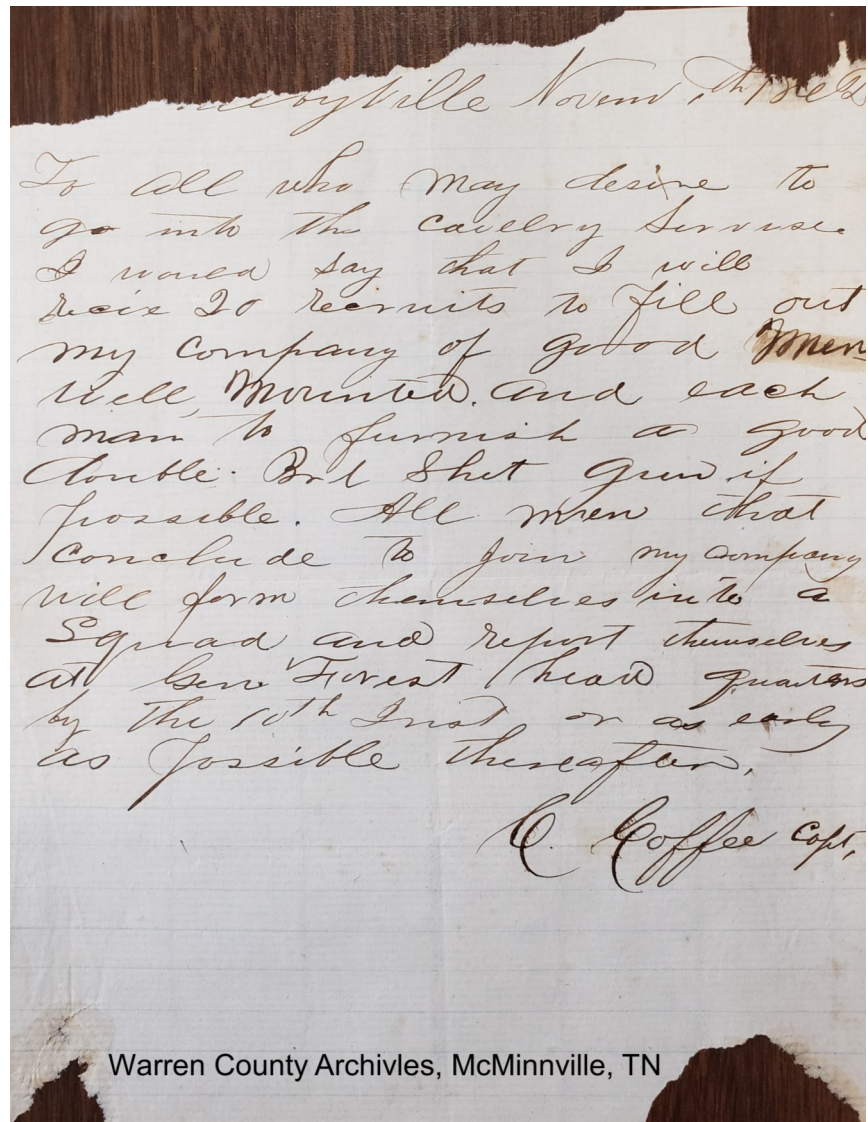 Novem th 1862
To all who may desire to
go into the cavelry Servise
I would say that I will
recie 20 recruits to fill out
my company of good Men
well Mounted. and each
man to furnish a good
double Brl Shot Gun if
possible. All men that
conclude to join my company
will form themselves into a
Squad and report themselves
at Gen Forest head quarters
by the 10th Inst or as early
as possible thereafter.
C. Coffee Capt.
Warren County Archivles, McMinnville, TN